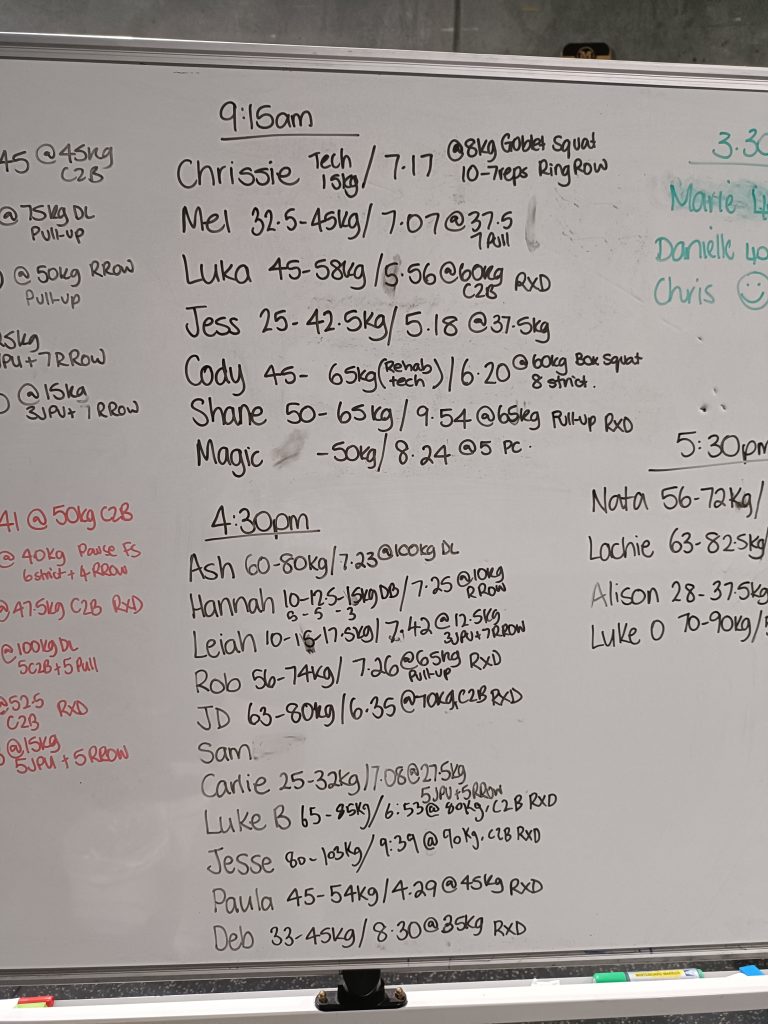 45 @45kg
C2B
@75kg DL
Pull-up
@50kg RROW
Pull-up
5kg
JPU+7RROW
@15kg
3JPU+7RROW
41 @50kg C2B
@ 40kg Pause FS
6strict+4RROW
@47.5kg C2B RXD
@100kg DL
5C2B+5Pull
@52.5 RXD
C2B
@15kg
5JPU+5RROW
9:15am
Chrissie Tech 15kg / 7.17 @8kg Goblet Squat
10-7reps Ring Row
Mel 32.5-45kg/ 7.07@37.5
7Pull
Luka 45-58kg/5.56@60kg RXD
C2B
Jess 25-42.5kg/5.18 @37.5kg
Cody 45- 65kg(Rehab tech)/6.20 @60kg Box Squat
8 strict.
Shane 50-65kg/9.54@65kg Pull-up RXD
Magic -50kg/8.24 @5 PC.
4:30pm
Ash 60-80kg/7.23@100kg DL
Hannah 10-12.5-15kgDB/7.25 @10kg
8 - 5 - 3 RROW
Leiah 10-15-17.5kg/7.42@12.5kg
3JPU+7RROW
Rob 56-74kg/ 7.26@65kg RXD
Pull-up
JD 63-80kg/6.35@70kg,C2B RXD
Sam
Carlie 25-32kg/7.08@27.5kg
5JPU+5RROW
Luke B 65-85kg/6:53@ 80kg, C2B RXD
Jesse 80-103kg/9:39@90kg, C2B RXD
Paula 45-54kg/4.29@45kg RXD
Deb 33-45kg/8.30@35kg RXD
3.30
Marie
Danielle 40
Chris
5:30pm
Nata 56-72kg/
Lochie 63-82.5kg/
Alison 28-37.5kg
Luke O 70-90kg/